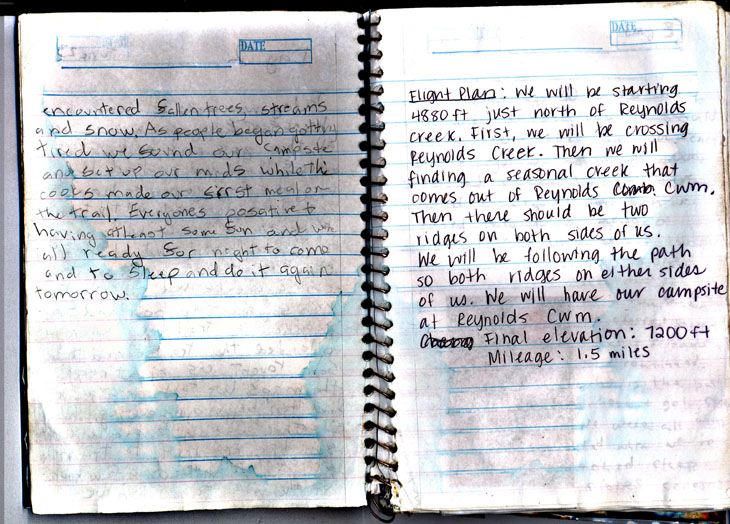 DATE
encountered fallen trees, streams
and snow. As people began gotting
tired we found our campsite
and set up our mids while the
cooks made our first meal on
the trail. Everyones posative &
having atleast some fun and we
all ready for night to come
and to sleep and do it again
tomorrow.
DATE
Flight Plan: We will be starting
4880 ft just north of Reynolds
creek. First, we will be crossing
Reynolds Creek. Then we will
finding a seasonal creek that
comes out of Reynolds Cwm.
Then there should be two
ridges on both sides of us.
We will be following the path
so both ridges on either sides
of us. We will have our campsite
at Reynolds Cwm.
Final elevation: 7200 ft
Mileage: 1.5 miles